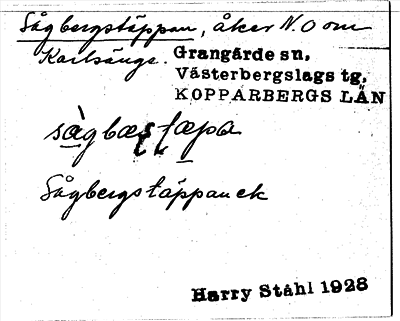 Sågbergstäppan, åker N.O om
Karlsängs. Grangärde sn,
Västerbergslags tg,
KOPPARBERGS LÄN
Sågbergstäppan ek
Harry Ståhl 1928